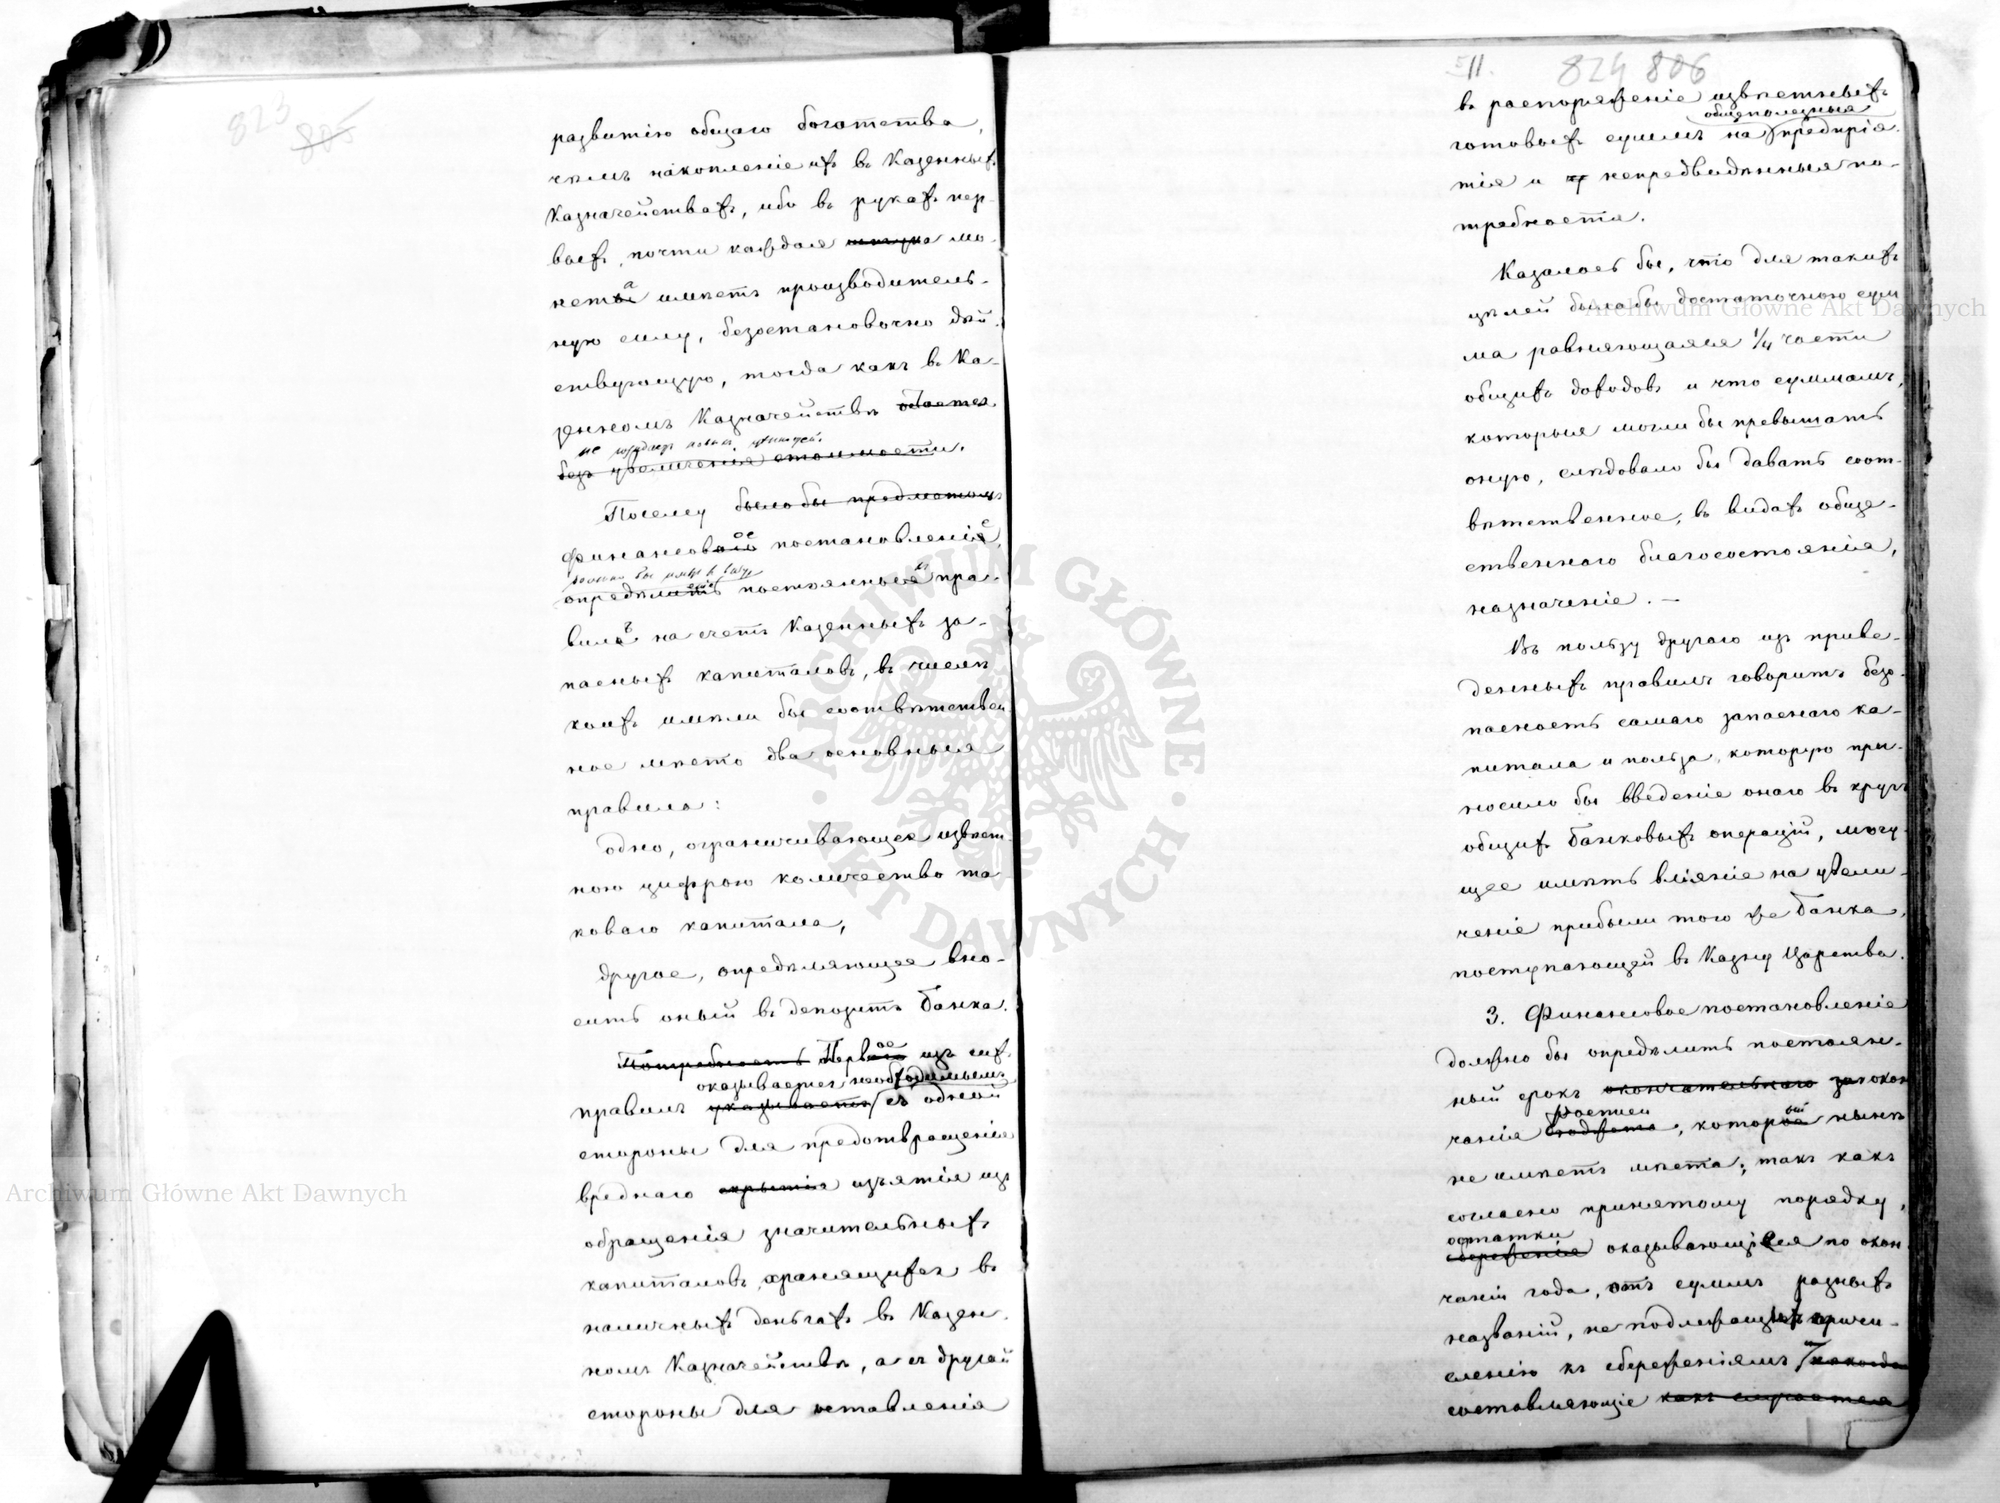 823
805
развитію общаго богатства,
чѣмъ накопленіе ихъ въ Казенныхъ
Казначействахъ, ибо въ рукахъ пер-
выхъ, почти каждая штука мо-
нета имѣетъ производитель-
ную силу, безостановочно дѣй-
ствующую, тогда какъ въ Ка-
зенномъ Казначействѣ остается
не
безъ увеличенія стоимости.
Посему было бы предметомъ
финансовое постановленіе,
должно бы имѣть въ виду
опредѣленіе постоянныхъ пра-
вилъ на счетъ Казенныхъ за-
пасныхъ капиталовъ, въ числѣ
коихъ имѣли бы соотвѣтствен-
ное мѣсто два основныя
правила:
одно, ограничивающее извѣст-
ною цифрою количество та
коваго капитала,
другое, опредѣляющее вно-
сить оный въ депозитъ Банка.
Потребность Первое изъ сихъ
оказывается необходимымъ
правилъ указывается съ одной
стороны для предотвращенія
вреднаго скрытія изъятія изъ
обращенія значительныхъ
капиталовъ, хранящихся въ
наличныхъ деньгахъ въ Казен-
номъ Казначействѣ, а съ другой
стороны для оставленія
11.
824 806
въ распоряженіе извѣстныхъ
общеполезныя
готовыхъ суммъ на предпрія-
тія и непредвидѣнныя по-
требности.
Казалось бы, что для такихъ
цѣлей была бы достаточною сум
ма равняющаяся 1/4 части
общихъ доходовъ и что суммамъ,
которыя могли бы превышать
оную, слѣдовало бы давать соот-
вѣтственное, въ видахъ обще-
ственнаго благосостоянія,
назначеніе. —
Въ пользу другаго изъ приве-
денныхъ правилъ говоритъ безо-
пасность самаго запаснаго ка-
питала и польза, которую при-
носило бы введеніе онаго въ кругъ
общихъ Банковыхъ операцій, могу-
щее имѣть вліяніе на увели-
ченіе прибыли того же Банка,
поступающей въ Казну Царства.
3. Финансовое постановленіе
должно бы опредѣлить постоян-
ный срокъ окончательнаго заокон
росписи
чанія бюджета, который нынѣ
не имѣетъ мѣста; такъ какъ
согласно принятому порядку,
остатки
сбереженія оказывающіеся по окон
чаніи года, отъ суммъ разныхъ
названій, не подлежащихъ причи-
сленію къ сбереженіямъ
составляющіе какъ случается
Archiwum Główne Akt Dawnych
Archiwum Główne Akt Dawnych
ARCHIWUM GŁÓWNE AKT DAWNYCH